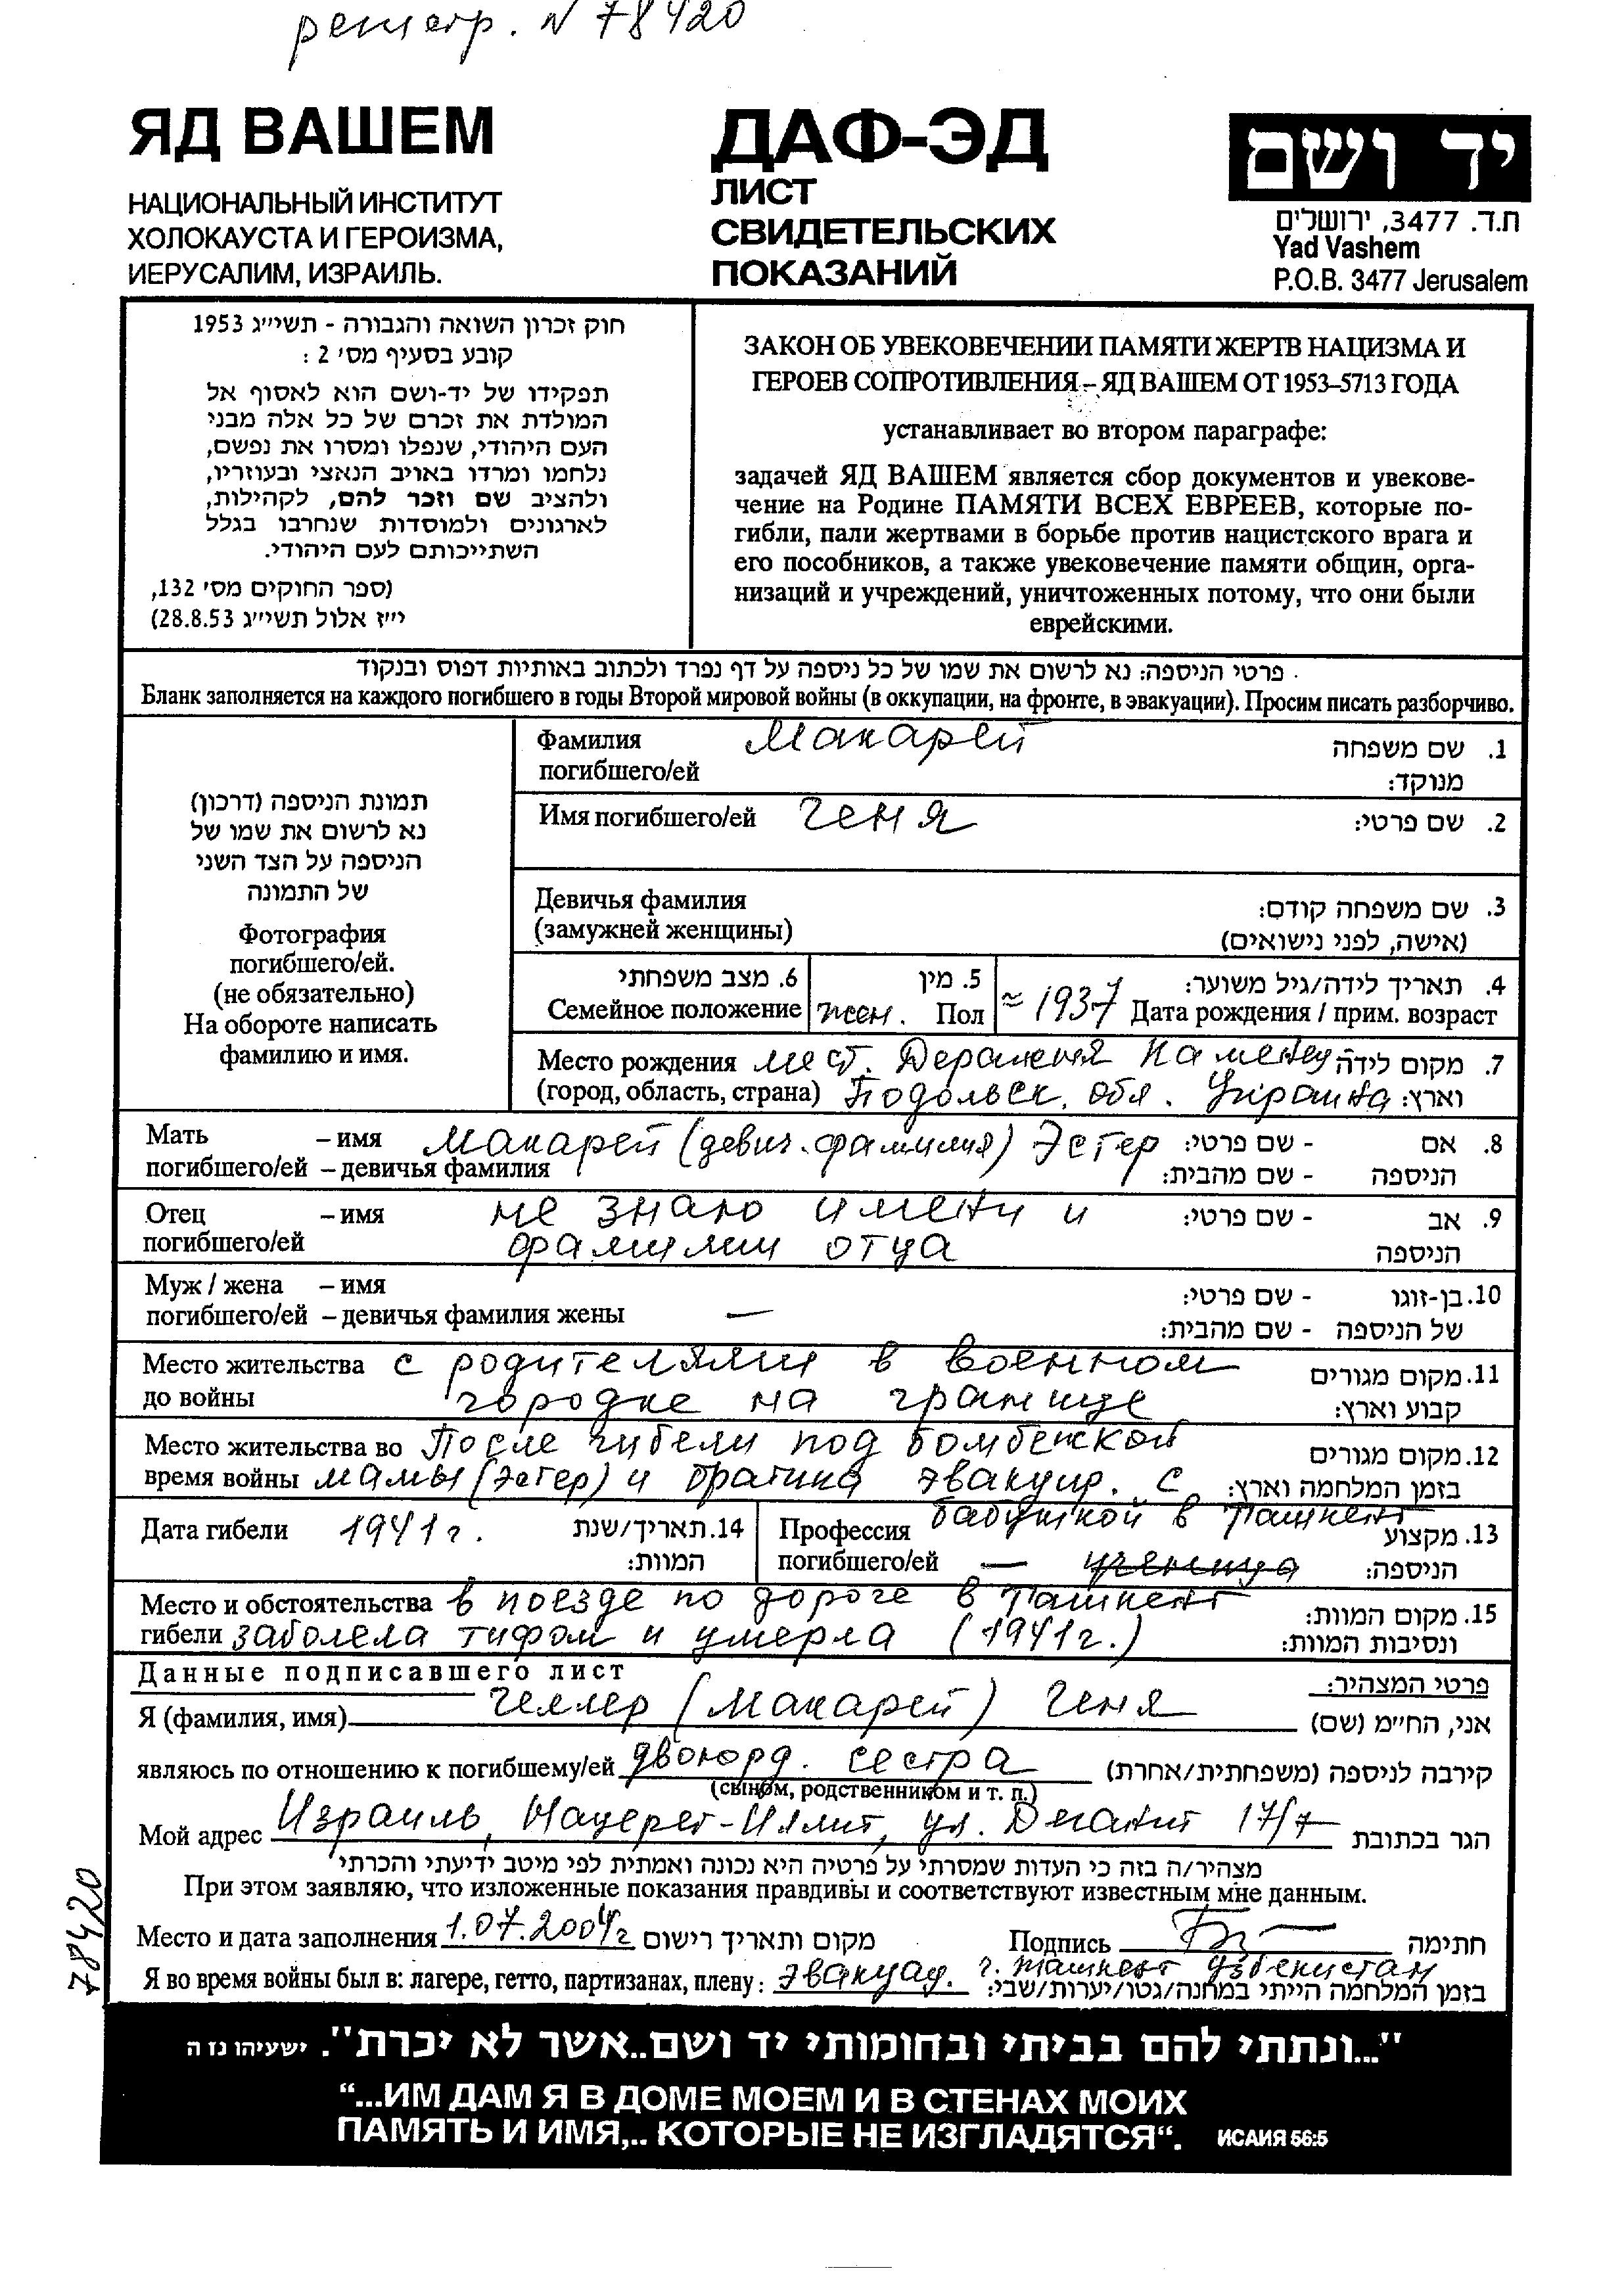 регистр. N 78420
ЯД ВАШЕМ
НАЦИОНАЛЬНЫЙ ИНСТИТУТ
ХОЛОКАУСТА И ГЕРОИЗМА,
ИЕРУСАЛИМ, ИЗРАИЛЬ.
ДАФ-ЭД
ЛИСТ
СВИДЕТЕЛЬСКИХ
ПОКАЗАНИЙ
יד ושם
ת.ד. 3477, ירושלים
Yad Vashem
P.O.B. 3477 Jerusalem
חוק זכרון השואה והגבורה - תשי״ג 1953
קובע בסעיף מס׳ 2 :
תפקידו של יד-ושם הוא לאסוף אל
המולדת את זכרם של כל אלה מבני
העם היהודי, שנפלו ומסרו את נפשם,
נלחמו ומרדו באויב הנאצי ובעוזריו,
ולהציב שם וזכר להם, לקהילות,
לארגונים ולמוסדות שנחרבו בגלל
השתייכותם לעם היהודי.
(ספר החוקים מס׳ 132,
י״ז אלול תשי״ג 28.8.53)
ЗАКОН ОБ УВЕКОВЕЧЕНИИ ПАМЯТИ ЖЕРТВ НАЦИЗМА И
ГЕРОЕВ СОПРОТИВЛЕНИЯ – ЯД ВАШЕМ ОТ 1953–5713 ГОДА
устанавливает во втором параграфе:
задачей ЯД ВАШЕМ является сбор документов и увекове-
чение на Родине ПАМЯТИ ВСЕХ ЕВРЕЕВ, которые по-
гибли, пали жертвами в борьбе против нацистского врага и
его пособников, а также увековечение памяти общин, орга-
низаций и учреждений, уничтоженных потому, что они были
еврейскими.
פרטי הניספה: נא לרשום את שמו של כל ניספה על דף נפרד ולכתוב באותיות דפוס ובנקוד
Бланк заполняется на каждого погибшего в годы Второй мировой войны (в оккупации, на фронте, в эвакуации). Просим писать разборчиво.
תמונת הניספה (דרכון)
נא לרשום את שמו של
הניספה על הצד השני
של התמונה
Фотография
погибшего/ей.
(не обязательно)
На обороте написать
фамилию и имя.
Фамилия Макарей 1. שם משפחה
погибшего/ей מנוקד:
Имя погибшего/ей Геня 2. שם פרטי:
Девичья фамилия 3. שם משפחה קודם:
(замужней женщины) (אישה, לפני נישואים)
6. מצב משפחתי 5. מין 4. תאריך לידה/גיל משוער:
Семейное положение жен. Пол ≈ 1937 Дата рождения / прим. возраст
Место рождения мест. Деражня Каменец 7. מקום לידה
(город, область, страна) Подольск. обл. Украина וארץ:
Мать – имя Макарей (девич. фамилия) Эстер 8. אם - שם פרטי:
погибшего/ей – девичья фамилия הניספה - שם מהבית:
Отец – имя не знаю имени и 9. אב - שם פרטי:
погибшего/ей фамилии отца הניספה
Муж / жена – имя 10. בן-זוגו - שם פרטי:
погибшего/ей – девичья фамилия жены — של הניספה - שם מהבית:
Место жительства с родителями в военном 11. מקום מגורים
до войны городке на границе קבוע וארץ:
Место жительства во После гибели под бомбежкой 12. מקום מגורים
время войны мамы (Эстер) и братика эвакуир. с בזמן המלחמה וארץ:
бабушкой в Ташкент
Дата гибели 1941г. 14. תאריך/שנת Профессия 13. מקצוע
המוות: погибшего/ей — ученица הניספה:
Место и обстоятельства в поезде по дороге в Ташкент 15. מקום המוות:
гибели заболела тифом и умерла (1941г.) ונסיבות המוות:
Данные подписавшего лист פרטי המצהיר:
Я (фамилия, имя) Геллер (Макарей) Геня אני, החי״מ (שם)
являюсь по отношению к погибшему/ей двоюрд. сестра קירבה לניספה (משפחתית/אחרת)
(сыном, родственником и т. п.)
Мой адрес Израиль, Нацерет-Иллит, ул. Деканит 17/7 הגר בכתובת
מצהיר/ה בזה כי העדות שמסרתי על פרטיה היא נכונה ואמתית לפי מיטב ידיעתי והכרתי
При этом заявляю, что изложенные показания правдивы и соответствуют известным мне данным.
Место и дата заполнения 1.07.2004г מקום ותאריך רישום Подпись חתימה
Я во время войны был в: лагере, гетто, партизанах, плену: эвакуац. г. Ташкент Узбекистан בזמן המלחמה הייתי במחנה/גטו/יערות/שבי:
78420
"...ונתתי להם בביתי ובחומותי יד ושם..אשר לא יכרת". ישעיהו נז ה
“...ИМ ДАМ Я В ДОМЕ МОЕМ И В СТЕНАХ МОИХ
ПАМЯТЬ И ИМЯ,.. КОТОРЫЕ НЕ ИЗГЛАДЯТСЯ“. ИСАИЯ 56:5